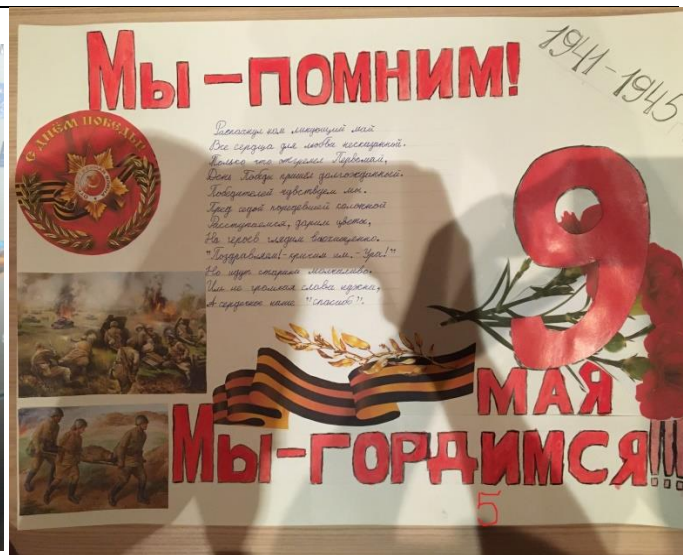 Мы-помним!
1941-1945
С ДНЁМ ПОБЕДЫ!
Распахнул нам ликующий май
Все сердца для любви несказанной.
Только что отгремел Первомай,
День Победы пришел долгожданный.
Победителей чувствуем мы.
Пред седой поредевшей колонной
Расступаемся, дарим цветы,
На героев глядим
"Поздравляем!-кричим им.-Ура!"
Но идут старики молчаливо.
Им не громкая слава нужна,
А сердечное наше "спасибо".
9
МАЯ
Мы-гордимся!!!
5